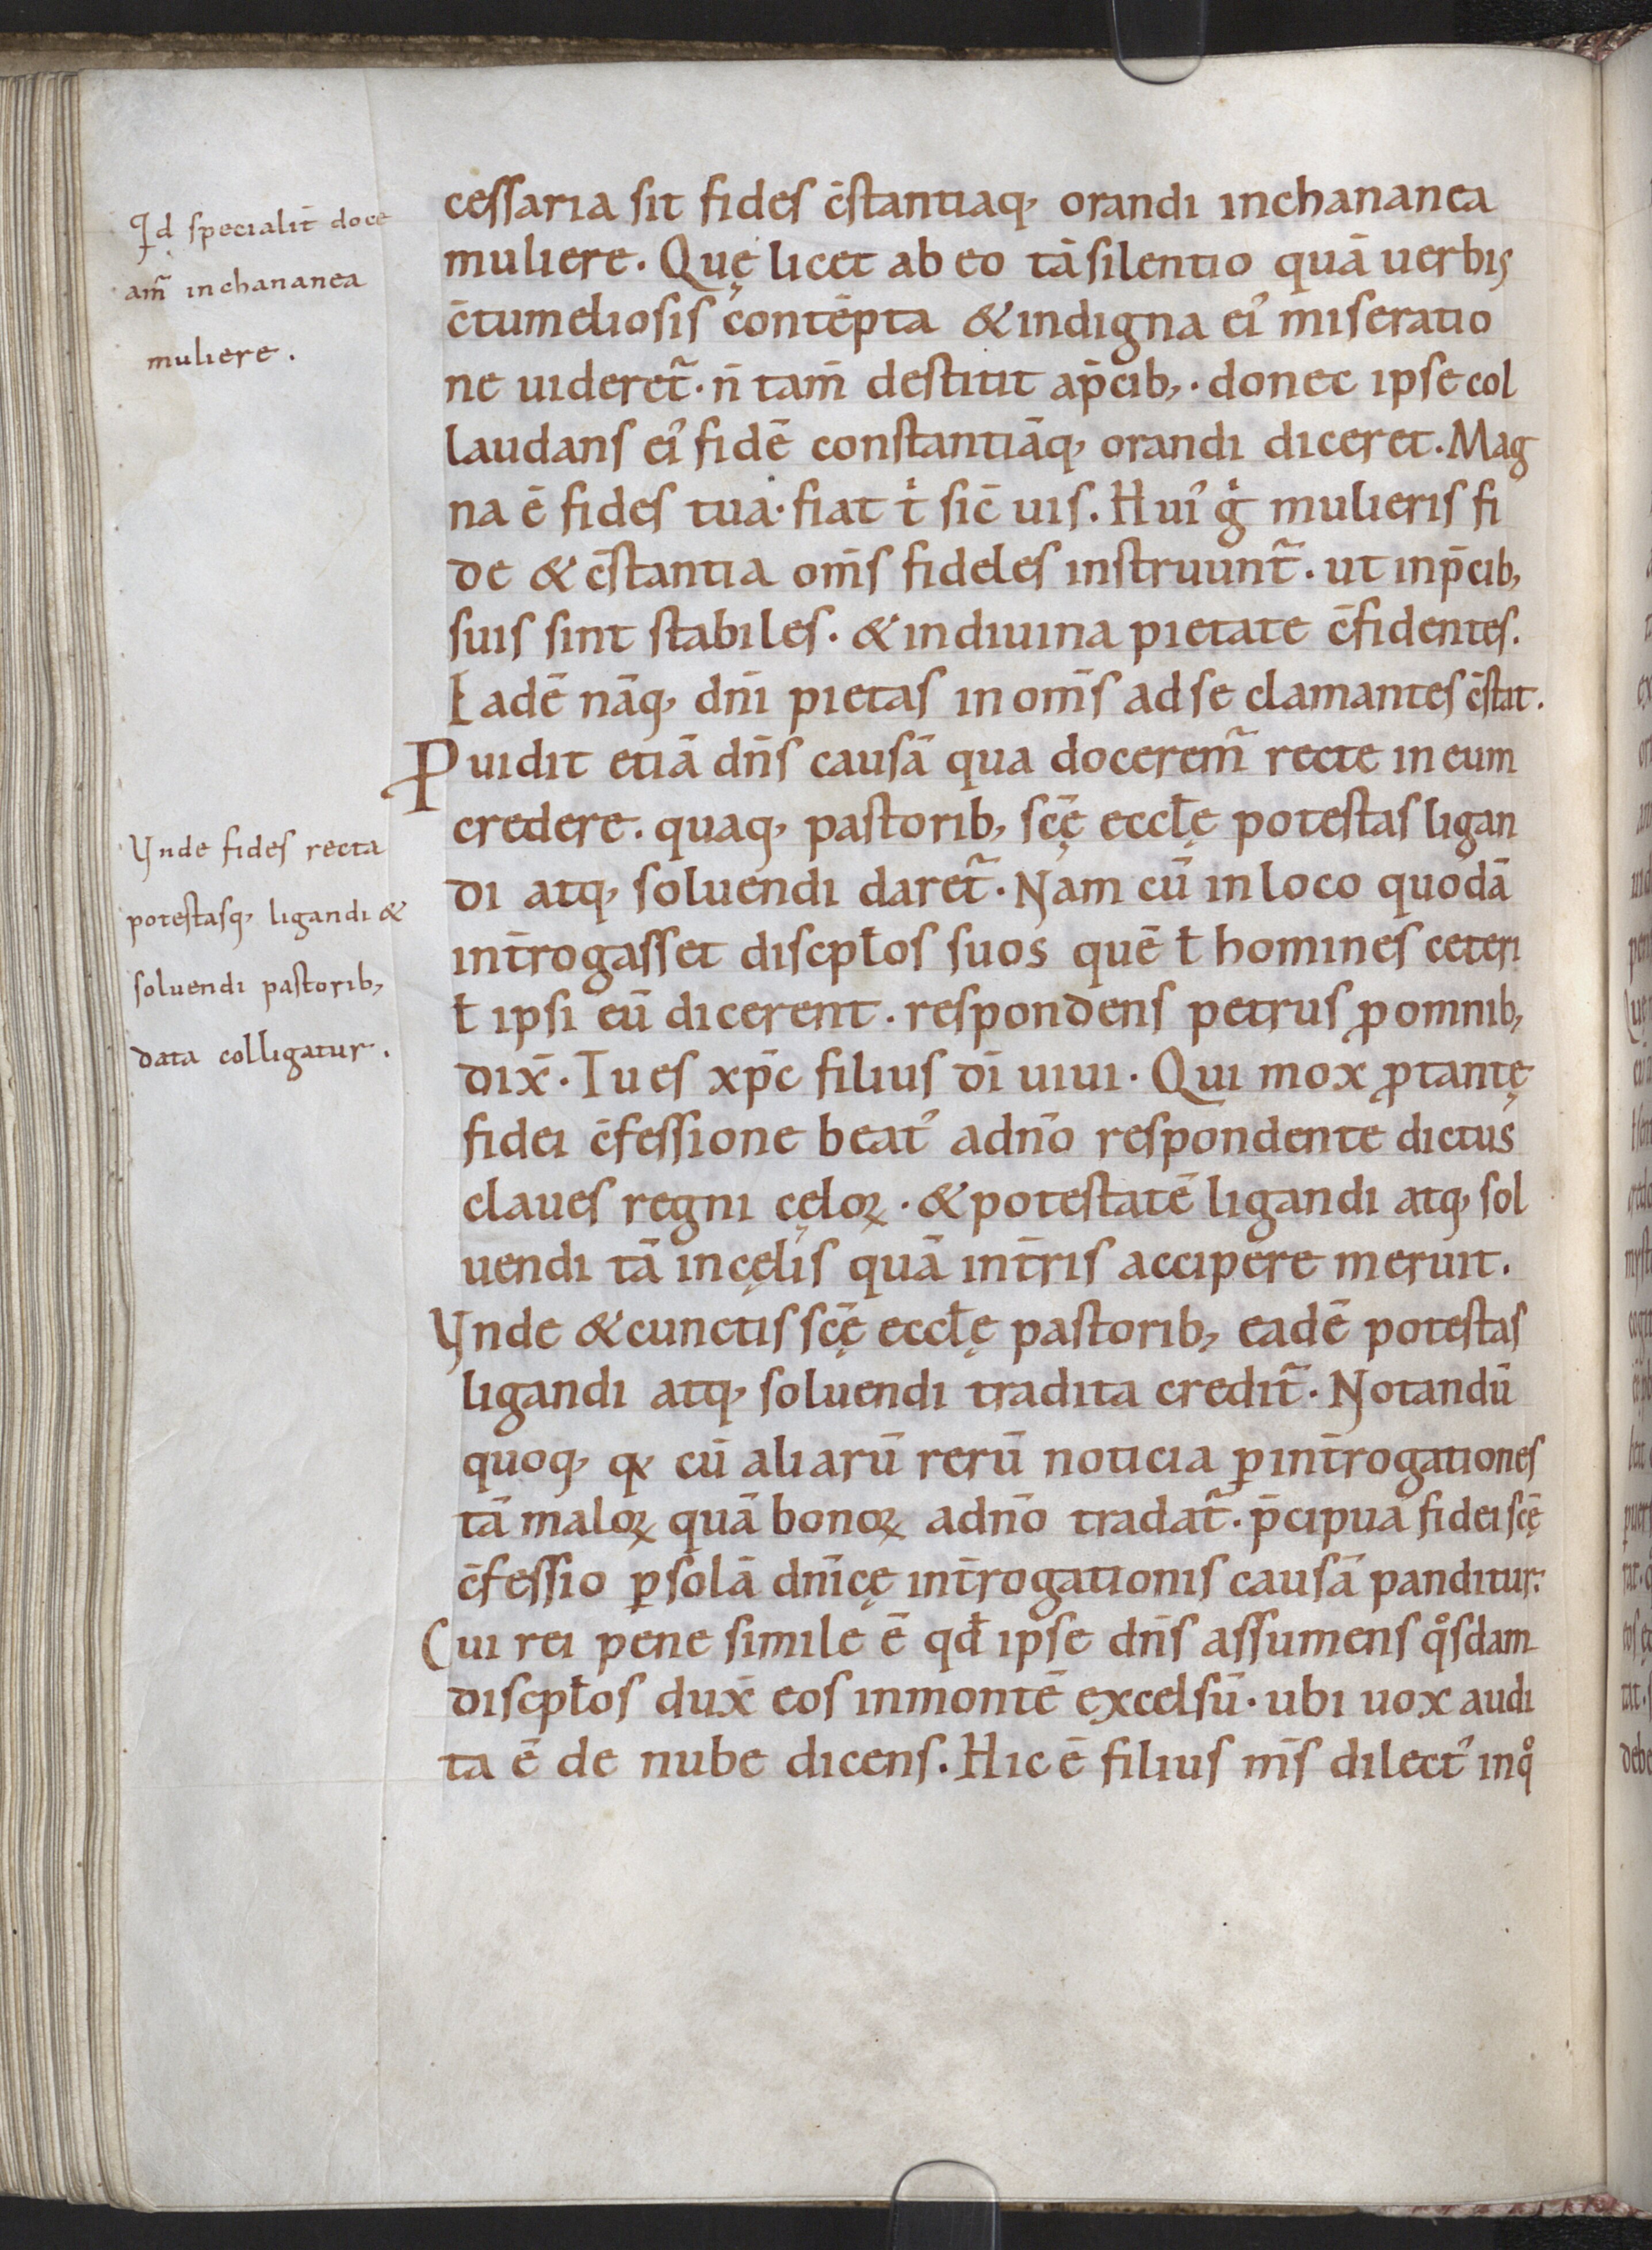 cessaria sit fides c̄stantiaq, orandi inchananea
muliere. Quę licet ab eo tā silentio quā uerbis
c̄tumeliosis contēpta & indigna ei᾽ miseratio
ne uideret̃. n̄ tam̄ destitit ap̄cib,. donec ipse col
laudans ei᾽ fidē constantiāq, orandi diceret. Mag
na ē fides tua. fiat tͥ sic̄ uis. Hui᾽ gͥ mulieris fi
de & c̄stantia om̄s fideles instruunt̃. ut inp̄cib,
suis sint stabiles. & indiuina pietate c̄fidentes.
Eadē nāq, dn̄i pietas in om̄s ad se clamantes c̄stat.
Ꝓuidit etiā dn̄s causā qua docerem̃ recte in eum
credere. quaq, pastorib, sc̄ę eccłę potestas ligan
di atq, soluendi daret̃. Nam cū in loco quodā
int̄rogasset discipłos suos quē ł homines ceteri
ł ipsi eū dicerent. respondens petrus ꝓ omnib,
dix̄. Tu es xp̄c filius dī uiui. Qui mox ꝓ tantę
fidei c̄fessione beat᾽ adn̄o respondente dictus
claues regni cęloꝝ. & potestatē ligandi atq, sol
uendi tā incęlis quā int̄ris accipere meruit.
Vnde & cunctis sc̄ę eccłę pastorib, eadē potestas
ligandi atq, soluendi tradita credit̃. Notandū
quoq, qꝫ cū aliarū rerū noticia ꝑ int̄rogationes
tā maloꝝ quā bonoꝝ adn̄o tradat̃. p̄cipua fidei sc̄ę
c̄fessio ꝑ solā dn̄icę int̄rogationis causā panditur:
Cui rei pene simile ē qd̄ ipse dn̄s assumens qͦsdam
discipłos dux̄ eos inmontē excelsū. ubi uox audi
ta ē de nube dicens. Hic ē filius m̄s dilect᾽ inqͦ
Qd specialit̄ doce
am̃ inchananea
muliere.
Vnde fides recta
potestasq, ligandi &
soluendi pastorib,
data colligatur.